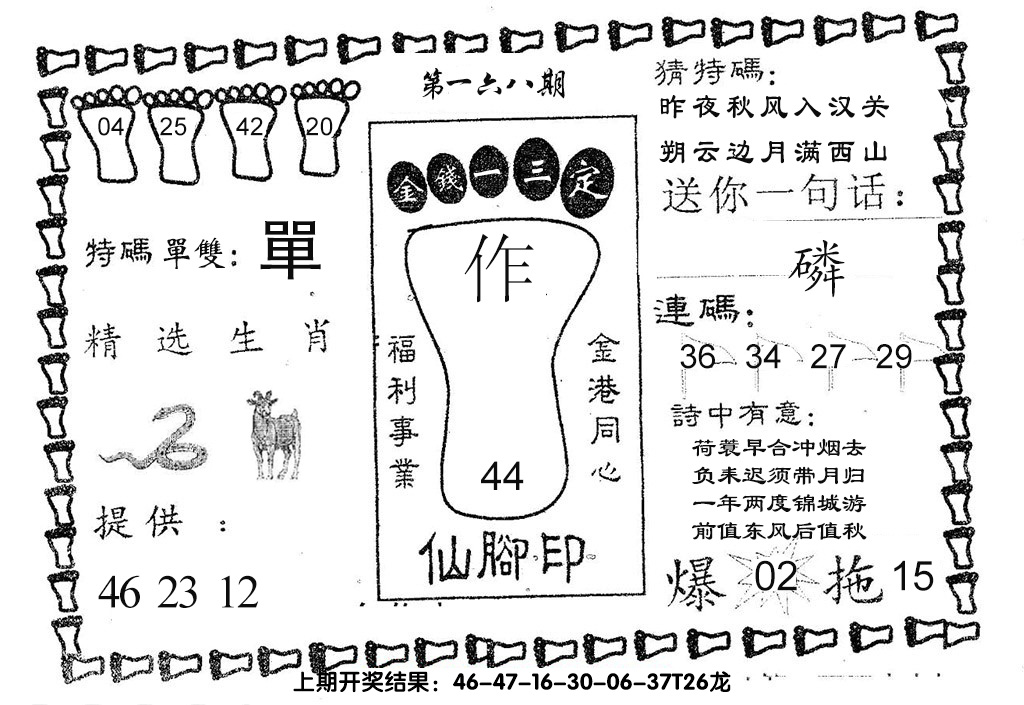 第一六八期
04 25 42 20
特碼單雙：單
精选生肖
提供：
46 23 12
金錢一三定
作
福利事業
金港同心
44
仙腳印
猜特碼：
昨夜秋风入汉关
朔云边月满西山
送你一句话：
磷
連碼：
36 34 27 29
詩中有意：
荷蓑早合冲烟去
负耒迟须带月归
一年两度锦城游
前值东风后值秋
爆 02 拖 15
上期开奖结果：46-47-16-30-06-37T26龙